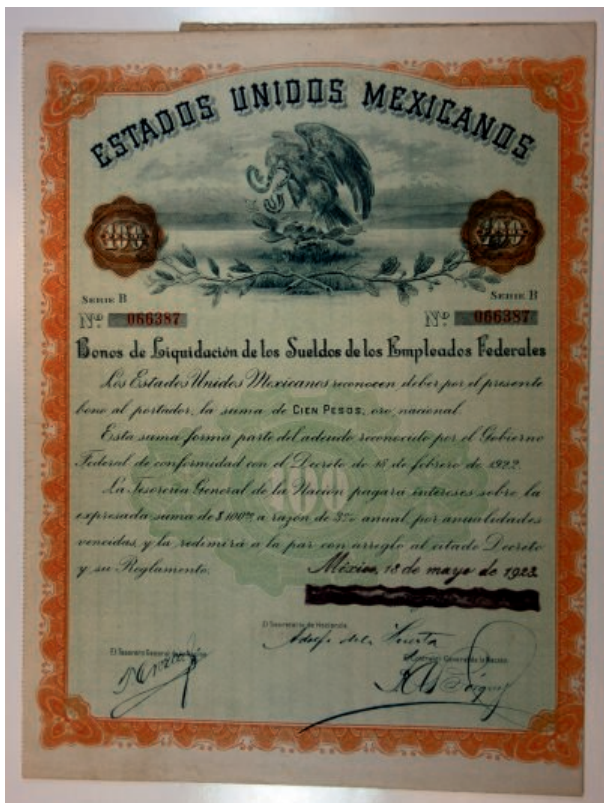 ESTADOS UNIDOS MEXICANOS
100 100
SERIE B SERIE B
Nº 066387 Nº 066387
Bonos de Liquidación de los Sueldos de los Empleados Federales
Los Estados Unidos Mexicanos reconocen deber por el presente
bono al portador, la suma de CIEN PESOS, oro nacional.
Esta suma forma parte del adeudo reconocido por el Gobierno
Federal de conformidad con el Decreto de 18 de febrero de 1922.
100
La Tesorería General de la Nación pagará intereses sobre la
expresada suma de $100.00 a razón de 3% anual, por anualidades
vencidas, y la redimirá a la par con arreglo al citado Decreto
y su Reglamento.
México, 18 de mayo de 1923.
El Secretario de Hacienda
Adolfo de la Huerta
El Tesorero General de la Nación
General de la Nación